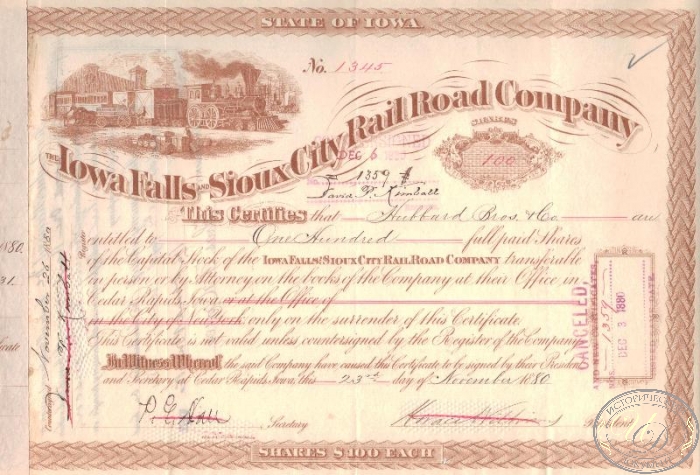 STATE OF IOWA.
No. 1345
THE IOWA FALLS AND SIOUX CITY RAIL ROAD COMPANY
SHARES
100
DEC 6
1359
David P. Kimball
This Certifies that Hubbard Bros. & Co. are
entitled to One Hundred full paid Shares
of the Capital Stock of the IOWA FALLS & SIOUX CITY RAIL ROAD COMPANY transferable
in person or by Attorney on the books of the Company at their Office in
Cedar Rapids, Iowa or at the Office of
in the City of New York only on the surrender of this Certificate.
This Certificate is not valid unless countersigned by the Register of the Company.
In Witness Whereof the said Company have caused this Certificate to be signed by their President
and Secretary at Cedar Rapids, Iowa, this 23rd day of November 1880
Secretary
President
SHARES $100 EACH
November 26 1880
Register
CANCELED,
AND NEW CERTIFICATES
NOS. 1359
DEC 3 1880
1880.
31.